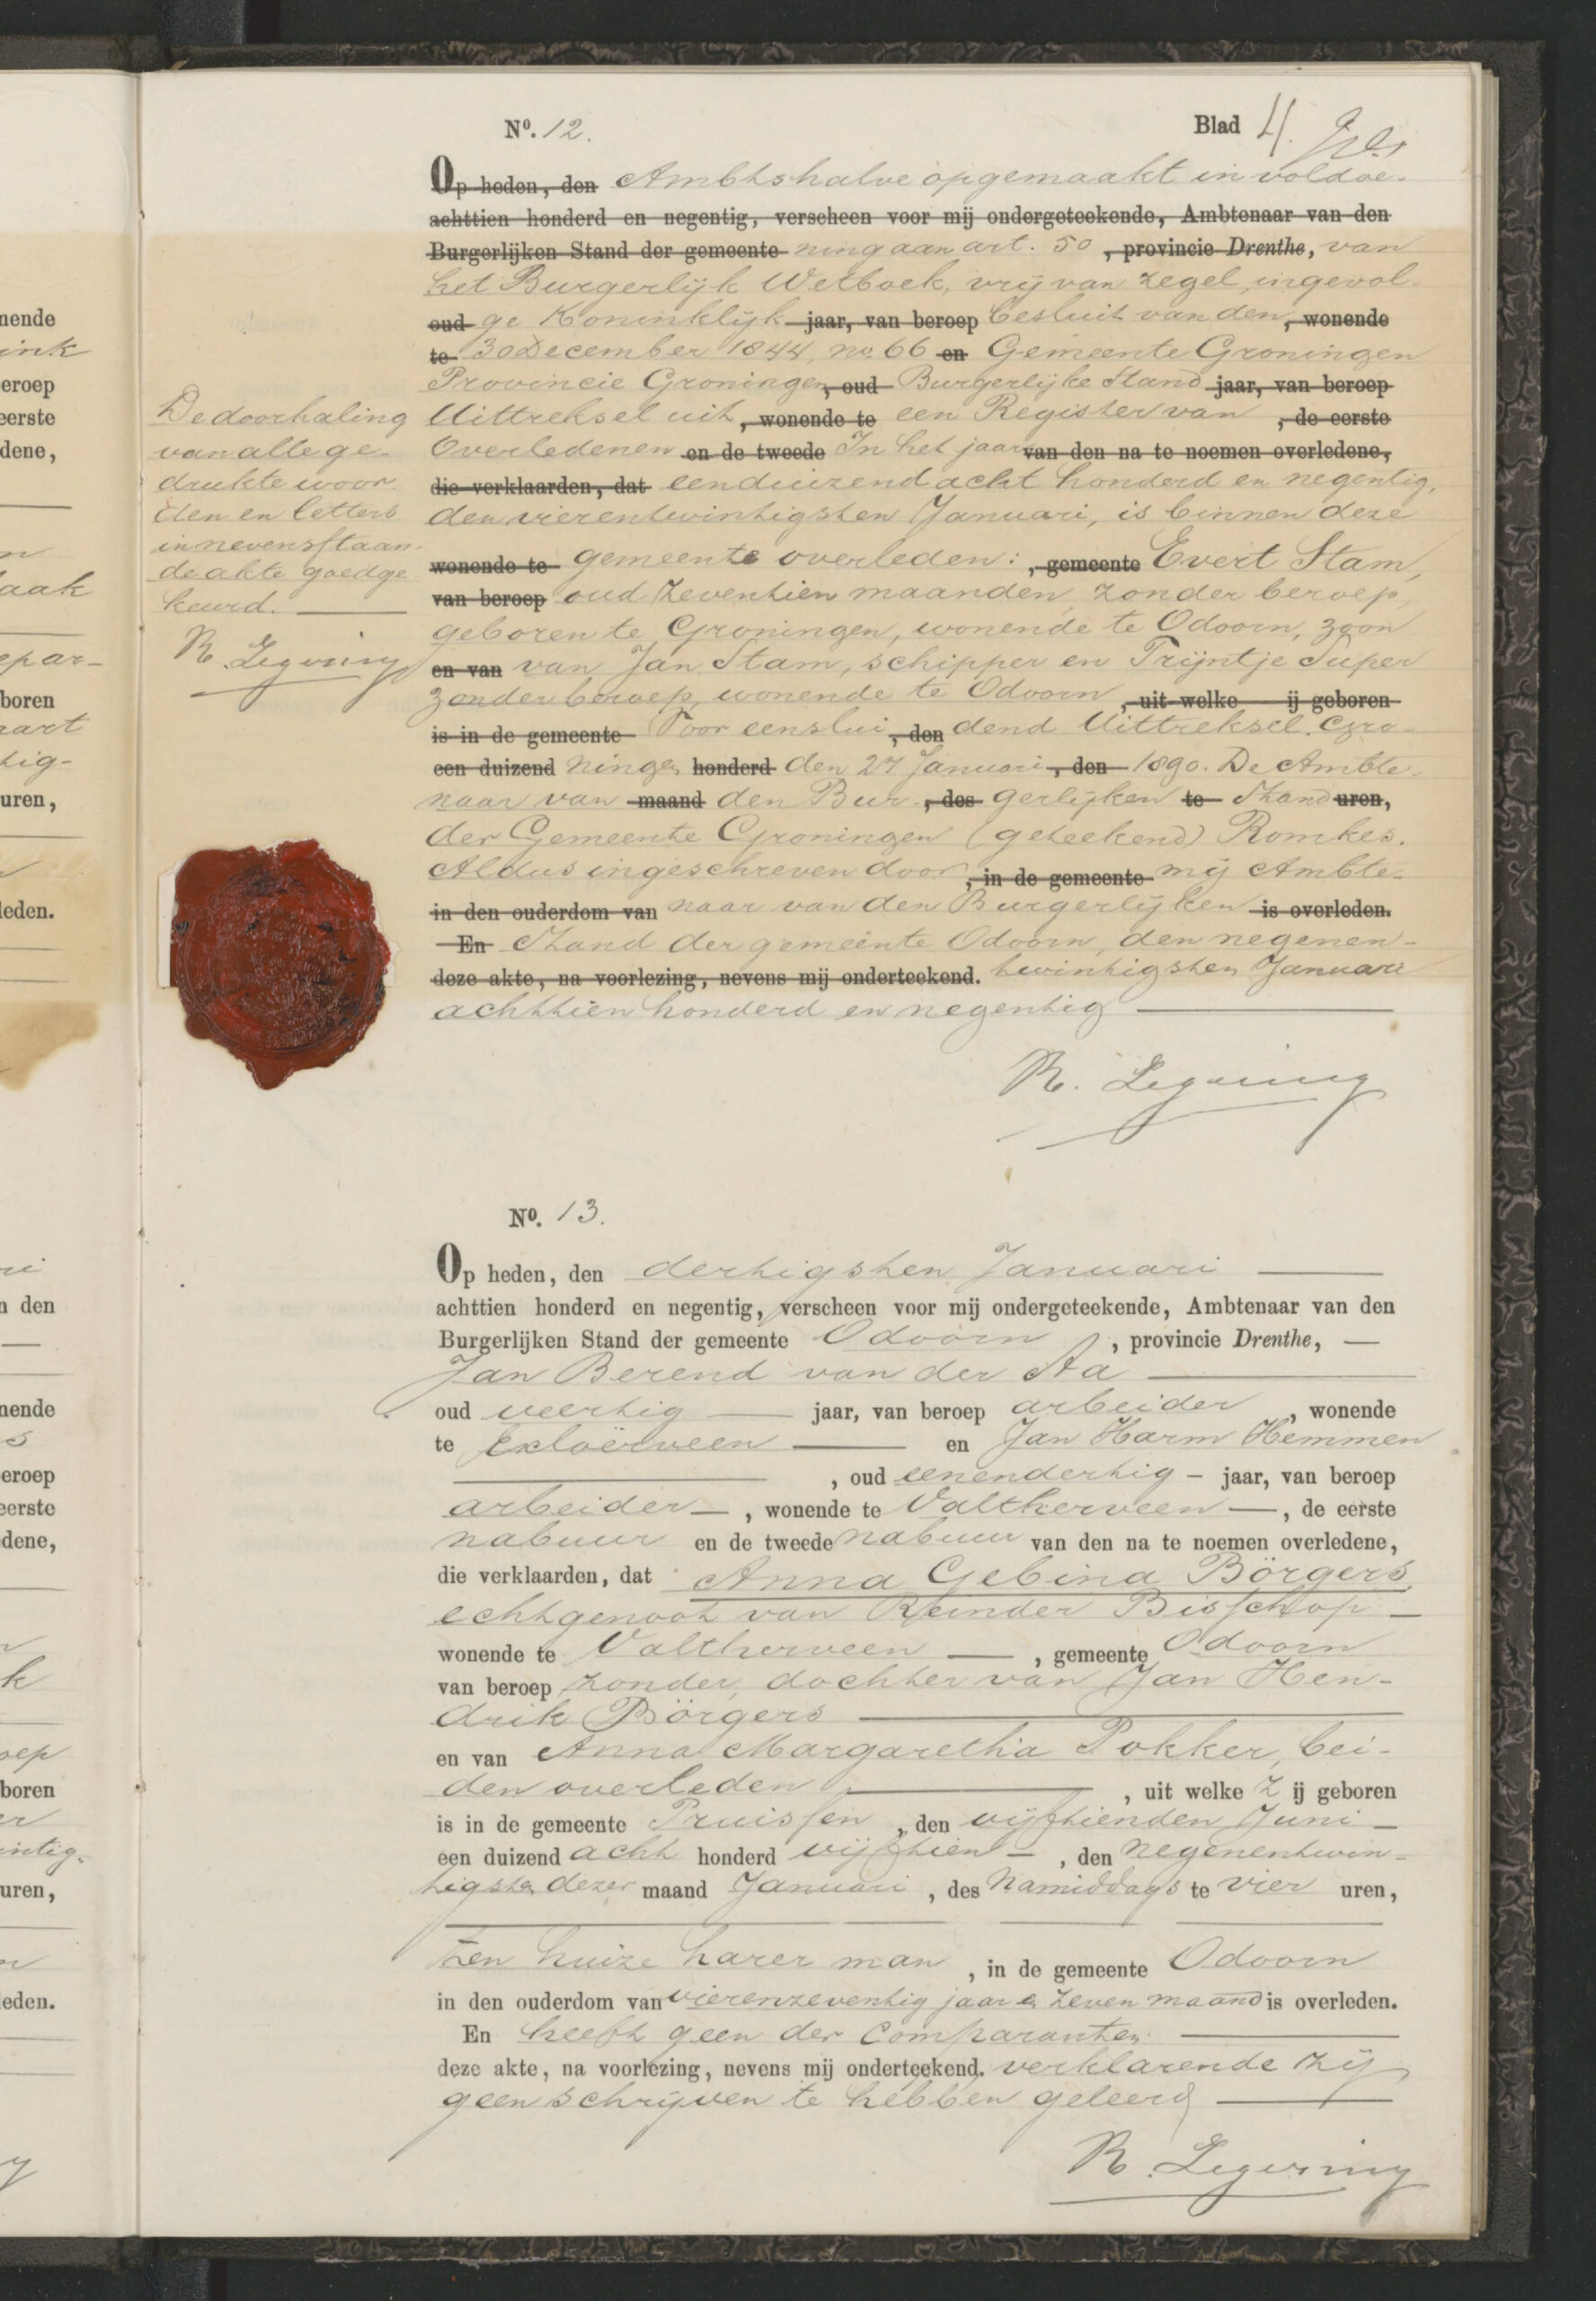 nende
eroep
eerste
dene,
boren
uren,
leden.
n den
nende
eroep
eerste
dene,
boren
uren,
leden.
No. 12.
Blad 4.
Op heden, den Ambtshalve opgemaakt in voldoe-
achttien honderd en negentig, verscheen voor mij ondergeteekende, Ambtenaar van den
Burgerlijken Stand der gemeente ning aan art. 50 , provincie Drenthe, van
het Burgerlijk Wetboek, vrij van zegel ingevol-
oud ge Koninklijk jaar, van beroep besluit van den , wonende
te 30 December 1844, no. 66 en Gemeente Groningen
Provincie Groningen , oud Burgerlijke Stand jaar, van beroep
Uittreksel uit , wonende te een Register van , de eerste
Overledenen en de tweede In het jaar van den na te noemen overledene,
die verklaarden, dat eenduizend acht honderd en negentig,
den vierentwintigsten Januari, is binnen deze
wonende te gemeente overleden: , gemeente Evert Stam,
van beroep oud zeventien maanden, zonder beroep,
geboren te Groningen, wonende te Odoorn, zoon
en van van Jan Stam, schipper en Trijntje Super
zonder beroep, wonende te Odoorn , uit welke ij geboren
is in de gemeente Voor eenslui , den dend Uittreksel. Gro-
een duizend ningen honderd den 27 Januari , den 1890. De Ambte-
naar van maand den Bur , des gerlijken te Stand uren,
der Gemeente Groningen (geteekend) Romkes.
Aldus ingeschreven door , in de gemeente mij Ambte-
in den ouderdom van naar van den Burgerlijken is overleden.
En Stand der gemeente Odoorn, den negenen-
deze akte, na voorlezing, nevens mij onderteekend. twintigsten Januari
achttien honderd en negentig
R. Legering
De doorhaling
van alle ge-
drukte woor-
den en letters
in nevensstaan-
de akte goedge-
keurd.
R. Legering
No. 13.
Op heden, den dertigsten Januari
achttien honderd en negentig, verscheen voor mij ondergeteekende, Ambtenaar van den
Burgerlijken Stand der gemeente Odoorn , provincie Drenthe,
Jan Berend van der Aa
oud veertig jaar, van beroep arbeider , wonende
te Exloërveen en Jan Harm Hemmen
, oud eenendertig jaar, van beroep
arbeider , wonende te Valtherveen , de eerste
nabuur en de tweede nabuur van den na te noemen overledene,
die verklaarden, dat Anna Gebina Börgers
echtgenoot van Reinder Bisschop
wonende te Valtherveen , gemeente Odoorn
van beroep zonder, dochter van Jan Hen-
drik Börgers
en van Anna Margaretha Pokker, bei-
den overleden , uit welke Z ij geboren
is in de gemeente Pruissen , den vijftienden Juni
een duizend acht honderd vijftien , den negenentwin-
tigsten dezer maand Januari , des Namiddags te vier uren,
ten huize harer man , in de gemeente Odoorn
in den ouderdom van vierenzeventig jaar en zeven maand is overleden.
En heeft geen der Comparanten
deze akte, na voorlezing, nevens mij onderteekend. verklarende zij
geen schrijven te hebben geleerd
R. Legering